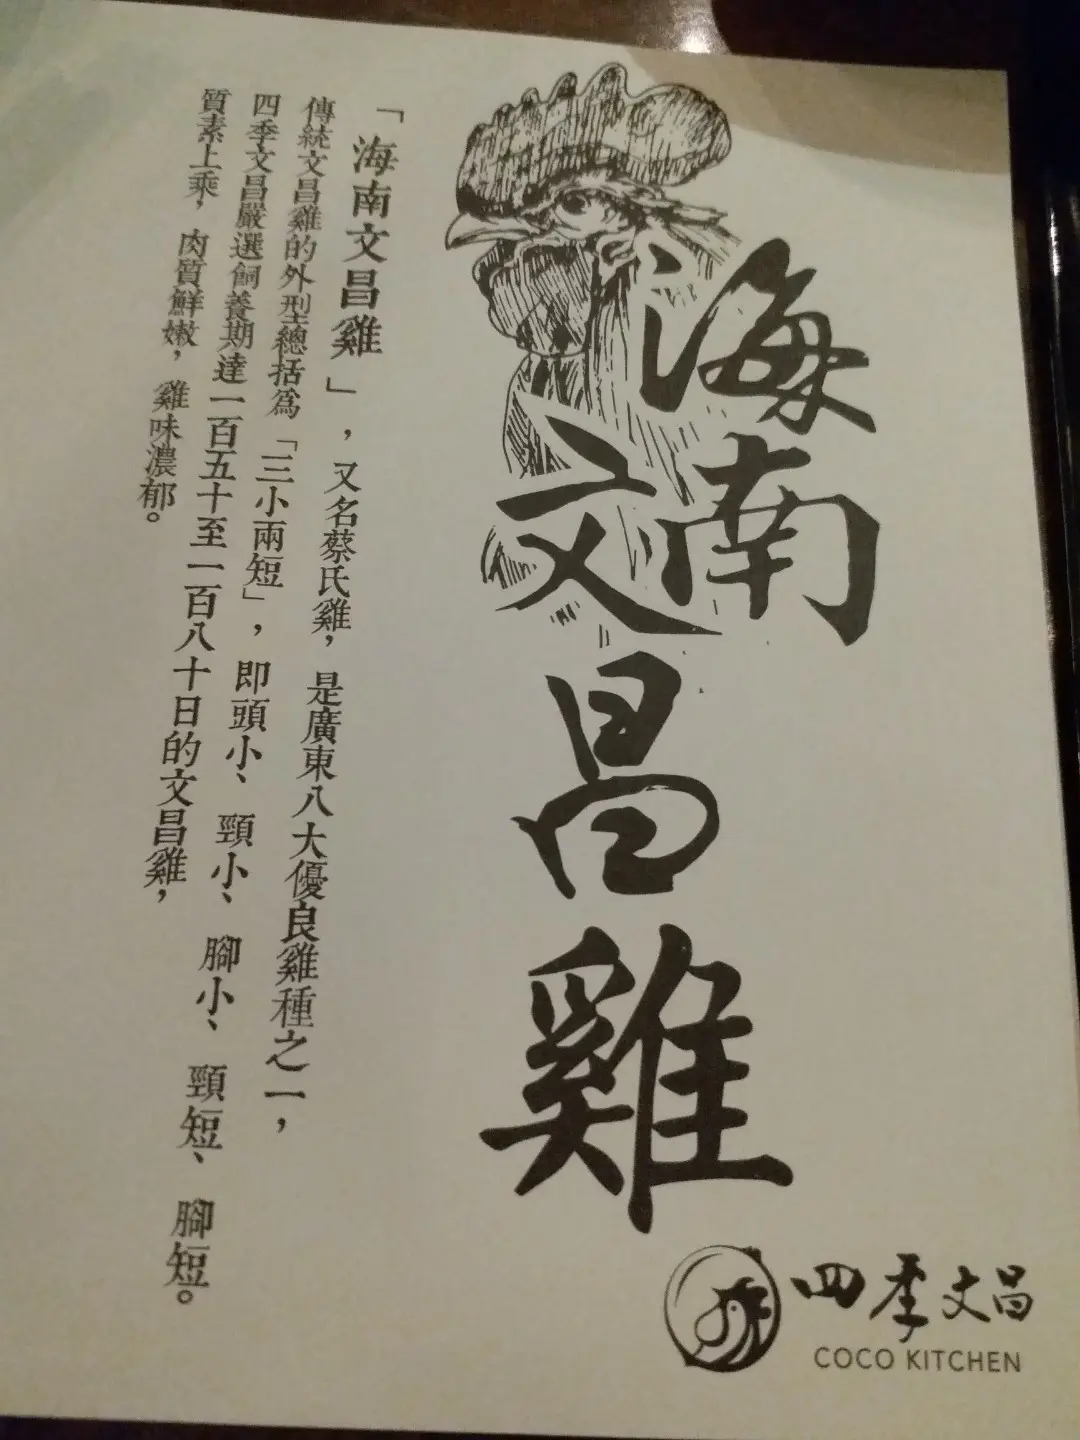 海南文昌雞
「海南文昌雞」，又名蔡氏雞，是廣東八大優良雞種之一，
傳統文昌雞的外型總括為「三小兩短」，即頭小、頸小、腳小、頸短、腳短。
四季文昌嚴選飼養期達一百五十至一百八十日的文昌雞，
質素上乘，肉質鮮嫩，雞味濃郁。
四季文昌
COCO KITCHEN